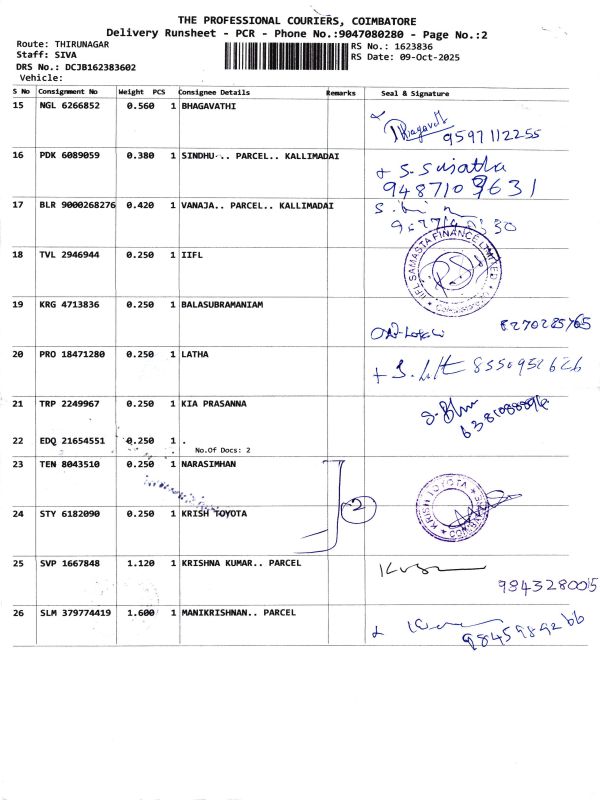 THE PROFESSIONAL COURIERS, COIMBATORE
Delivery Runsheet - PCR - Phone No.:9047080280 - Page No.:2
Route: THIRUNAGAR
Staff: SIVA
DRS No.: DCJB162383602
Vehicle:
RS No.: 1623836
RS Date: 09-Oct-2025
S No Consignment No Weight PCS Consignee Details Remarks Seal & Signature
15 NGL 6266852 0.560 1 BHAGAVATHI
Bhagavathi 9597112255
16 PDK 6089059 0.380 1 SINDHU.. PARCEL.. KALLIMADAI
S. Sujatha
9487103631
17 BLR 9000268276 0.420 1 VANAJA.. PARCEL.. KALLIMADAI
18 TVL 2946944 0.250 1 IIFL
IIFL SAMASTA FINANCE LIMITED
19 KRG 4713836 0.250 1 BALASUBRAMANIAM
8270285765
20 PRO 18471280 0.250 1 LATHA
21 TRP 2249967 0.250 1 KIA PRASANNA
22 EDQ 21654551 0.250 1 .
No.Of Docs: 2
23 TEN 8043510 0.250 1 NARASIMHAN
2
24 STY 6182090 0.250 1 KRISH TOYOTA
KRISH TOYOTA
25 SVP 1667848 1.120 1 KRISHNA KUMAR.. PARCEL
9843280015
26 SLM 379774419 1.600 1 MANIKRISHNAN.. PARCEL
9845989266